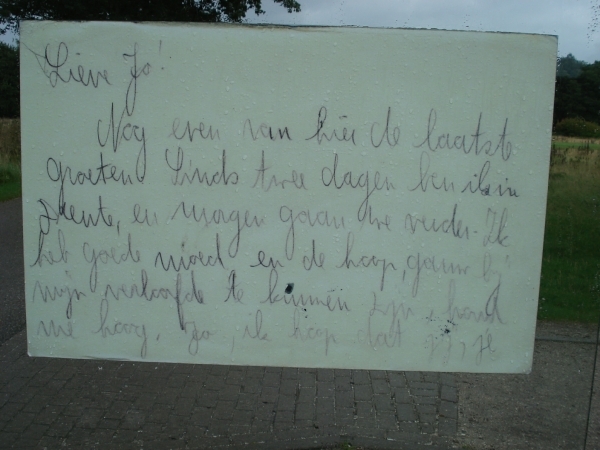 Lieve Jo!
Nog even van hier de laatste
groeten. Sinds twee dagen ben ik in
Drente, en morgen gaan we verder. Ik
heb goede moed en de hoop, gauw bij
mijn verloofde te kunnen zijn, houd
me hoog, Jo, ik hoop dat jij,